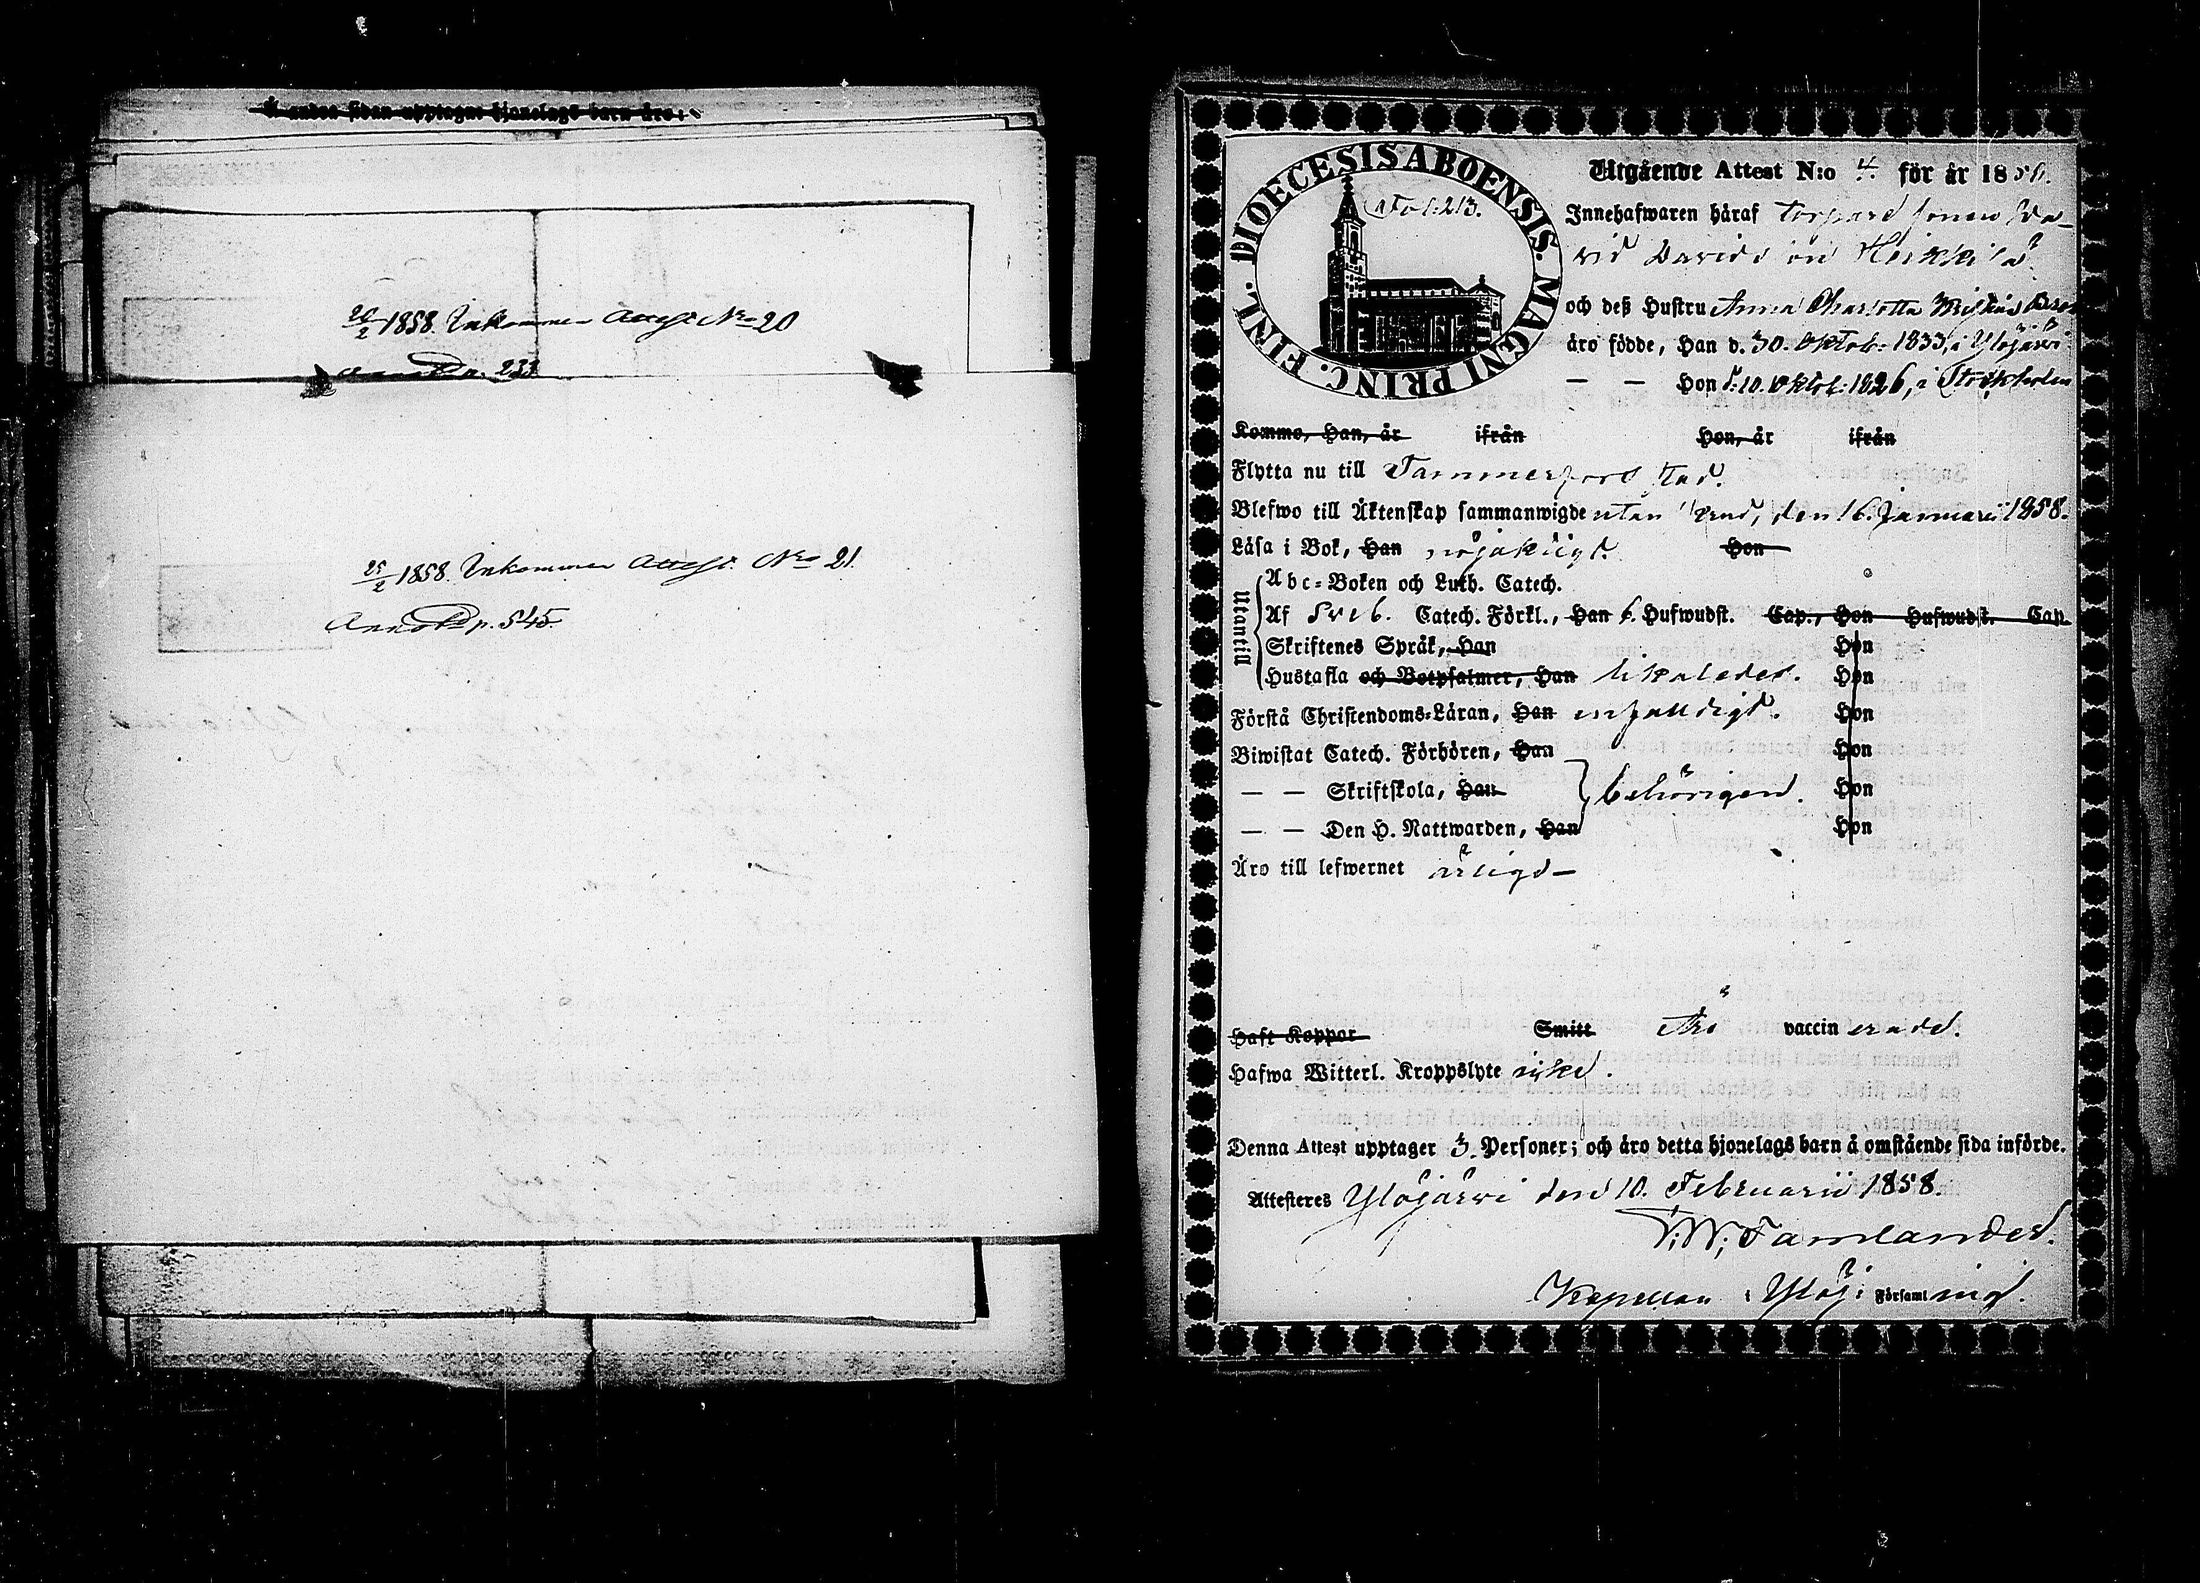 Å andra sidan upptagne hjonelags barn äro:
26/2 1858. Inkommen Attest No 20
Annot. p. 233
25/2 1858. Inkommen Attest No 21.
Annot. p. 545.
DIOECESIS ABOENSIS. MAGNI PRINC. FINL.
Fol: 213.
Utgående Attest N:o 4. för år 1858.
Innehafwaren häraf torpare sonen Da-
vid Davidsson Heikkilä
och deß Hustru Anna Charlotta
äro födde, Han d. 30. Oktob: 1833, i Ylöjärvi
— — Hon d: 10. Oktob: 1826, i Stockholm
Komma, Han, år ifrån Hon, år ifrån
Flytta nu till Tammerfors stad.
Blefwo till Äktenskap sammanwigde utan den 16. Januari 1858.
Läsa i Bok, Han nöjaktigt. Hon
Utantill
Abc-Boken och Luth. Catech.
Af Sveb. Catech. Förkl., Han 6. Hufwudst. Cap., Hon Hufwudst. Cap
Skriftenes Språk, Han Hon
Hustafla och Botpsalmer, Han likaledes. Hon
Förstå Christendoms-Läran, Han enfaldigt. Hon
Biwistat Catech. Förhören, Han Hon
— — Skriftskola, Han behörigen. Hon
— — Den H. Nattwarden, Han Hon
Äro till lefwernet ärligt—
Haft Koppor Smitt Äro vaccinerade.
Hafwa Witterl. Kroppslyte icke.
Denna Attest upptager 3. Personer; och äro detta hjonelags barn å omstående sida införde.
Attesteres Ylöjärvi den 10. Februarii 1858.
Tamlander.
Kapellan i Ylöj: Församling.